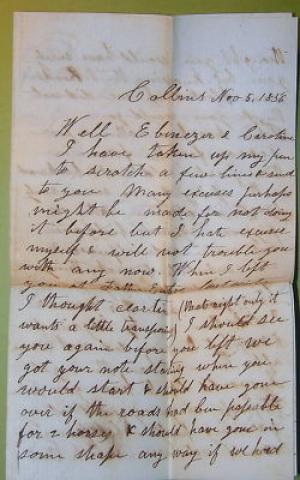 Collins Nov 5, 1856
Well Ebenezer & Caroline
I have taken up my pen
to scratch a few lines & send
to you Many excuses perhaps
might be made for not doing
it before but I hate excuses
myself & will not trouble you
with any now. When I left
you at Father
I thought (that right only it
wants a little transposing) I should see
you again before you left we
got your note stating when you
would start & should have gone
over if the roads had been passable
for 2 horses & should have gone in
some shape any way if we had